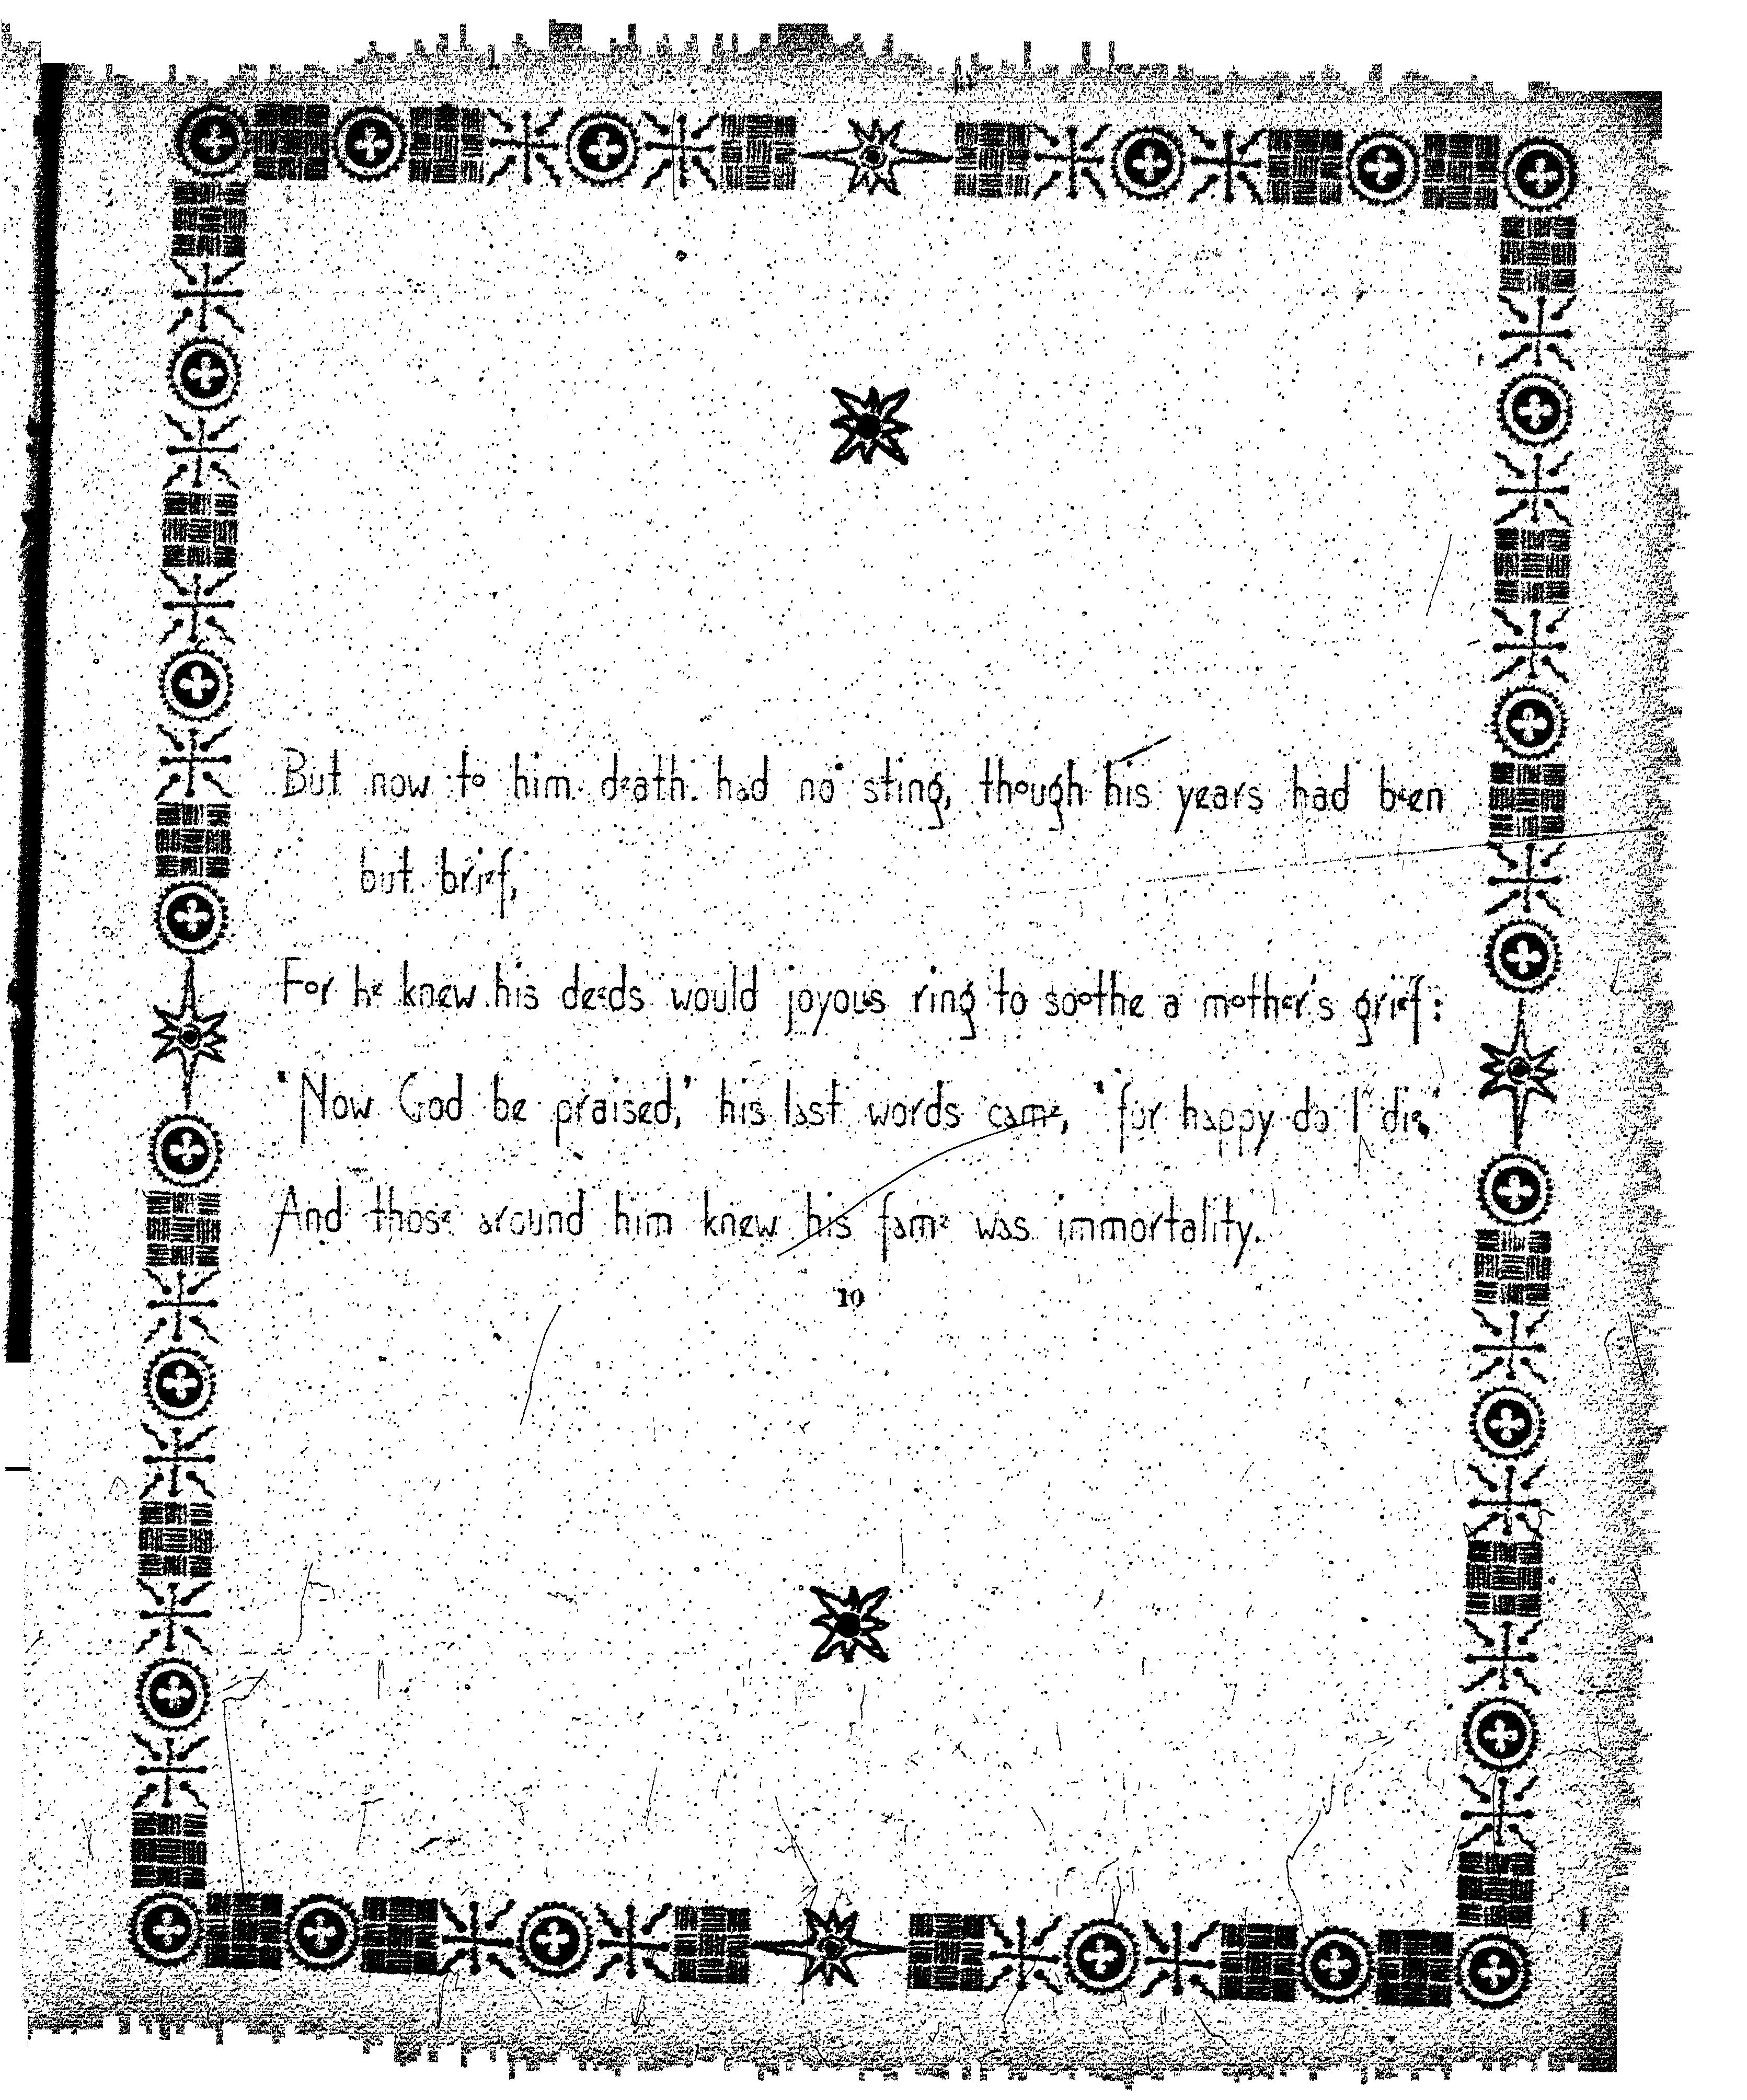 But now to him death had no sting, though his years had been
but brief,
For he knew his deeds would joyous ring to soothe a mother's grief:
'Now God be praised,' his last words came, 'for happy do I die,'
And those around him knew his fame was immortality.
10